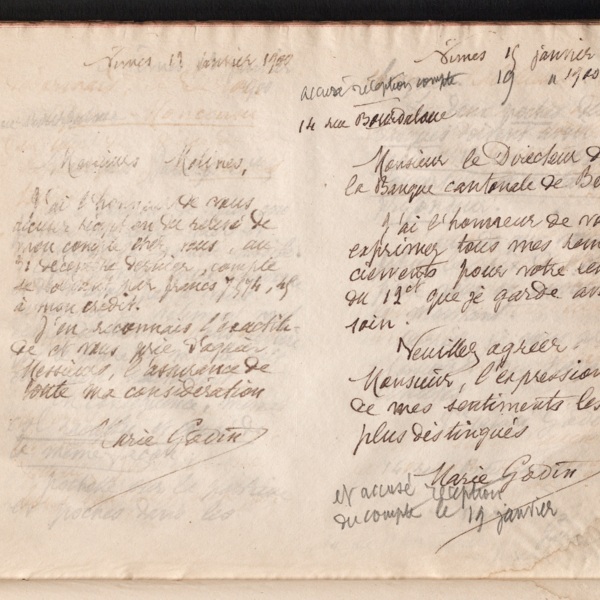 Nimes 13 janvier 1900
Messieurs Molines,
J'ai l'honneur de vous
accuser réception du relevé de
mon compte chez vous, au
31 décembre dernier, compte
se soldant par francs 7574,45
à mon crédit.
J'en reconnais l'exactitu-
de et vous prie d'agréer
Messieurs, l'assurance de
toute ma considération
Marie Godin
Nimes 15 janvier
19 " 1900
accusé réception compte
14 rue Bourdaloue
Monsieur le Directeur d
la Banque cantonale de Be
J'ai l'honneur de vo
exprimer tous mes rem
ciements pour votre
du 12ct que je garde av
soin.
Veuillez agréer
Monsieur, l'expression
de mes sentiments les
plus distingués
Marie Godin
et accusé réception
du compte le 19 janvier